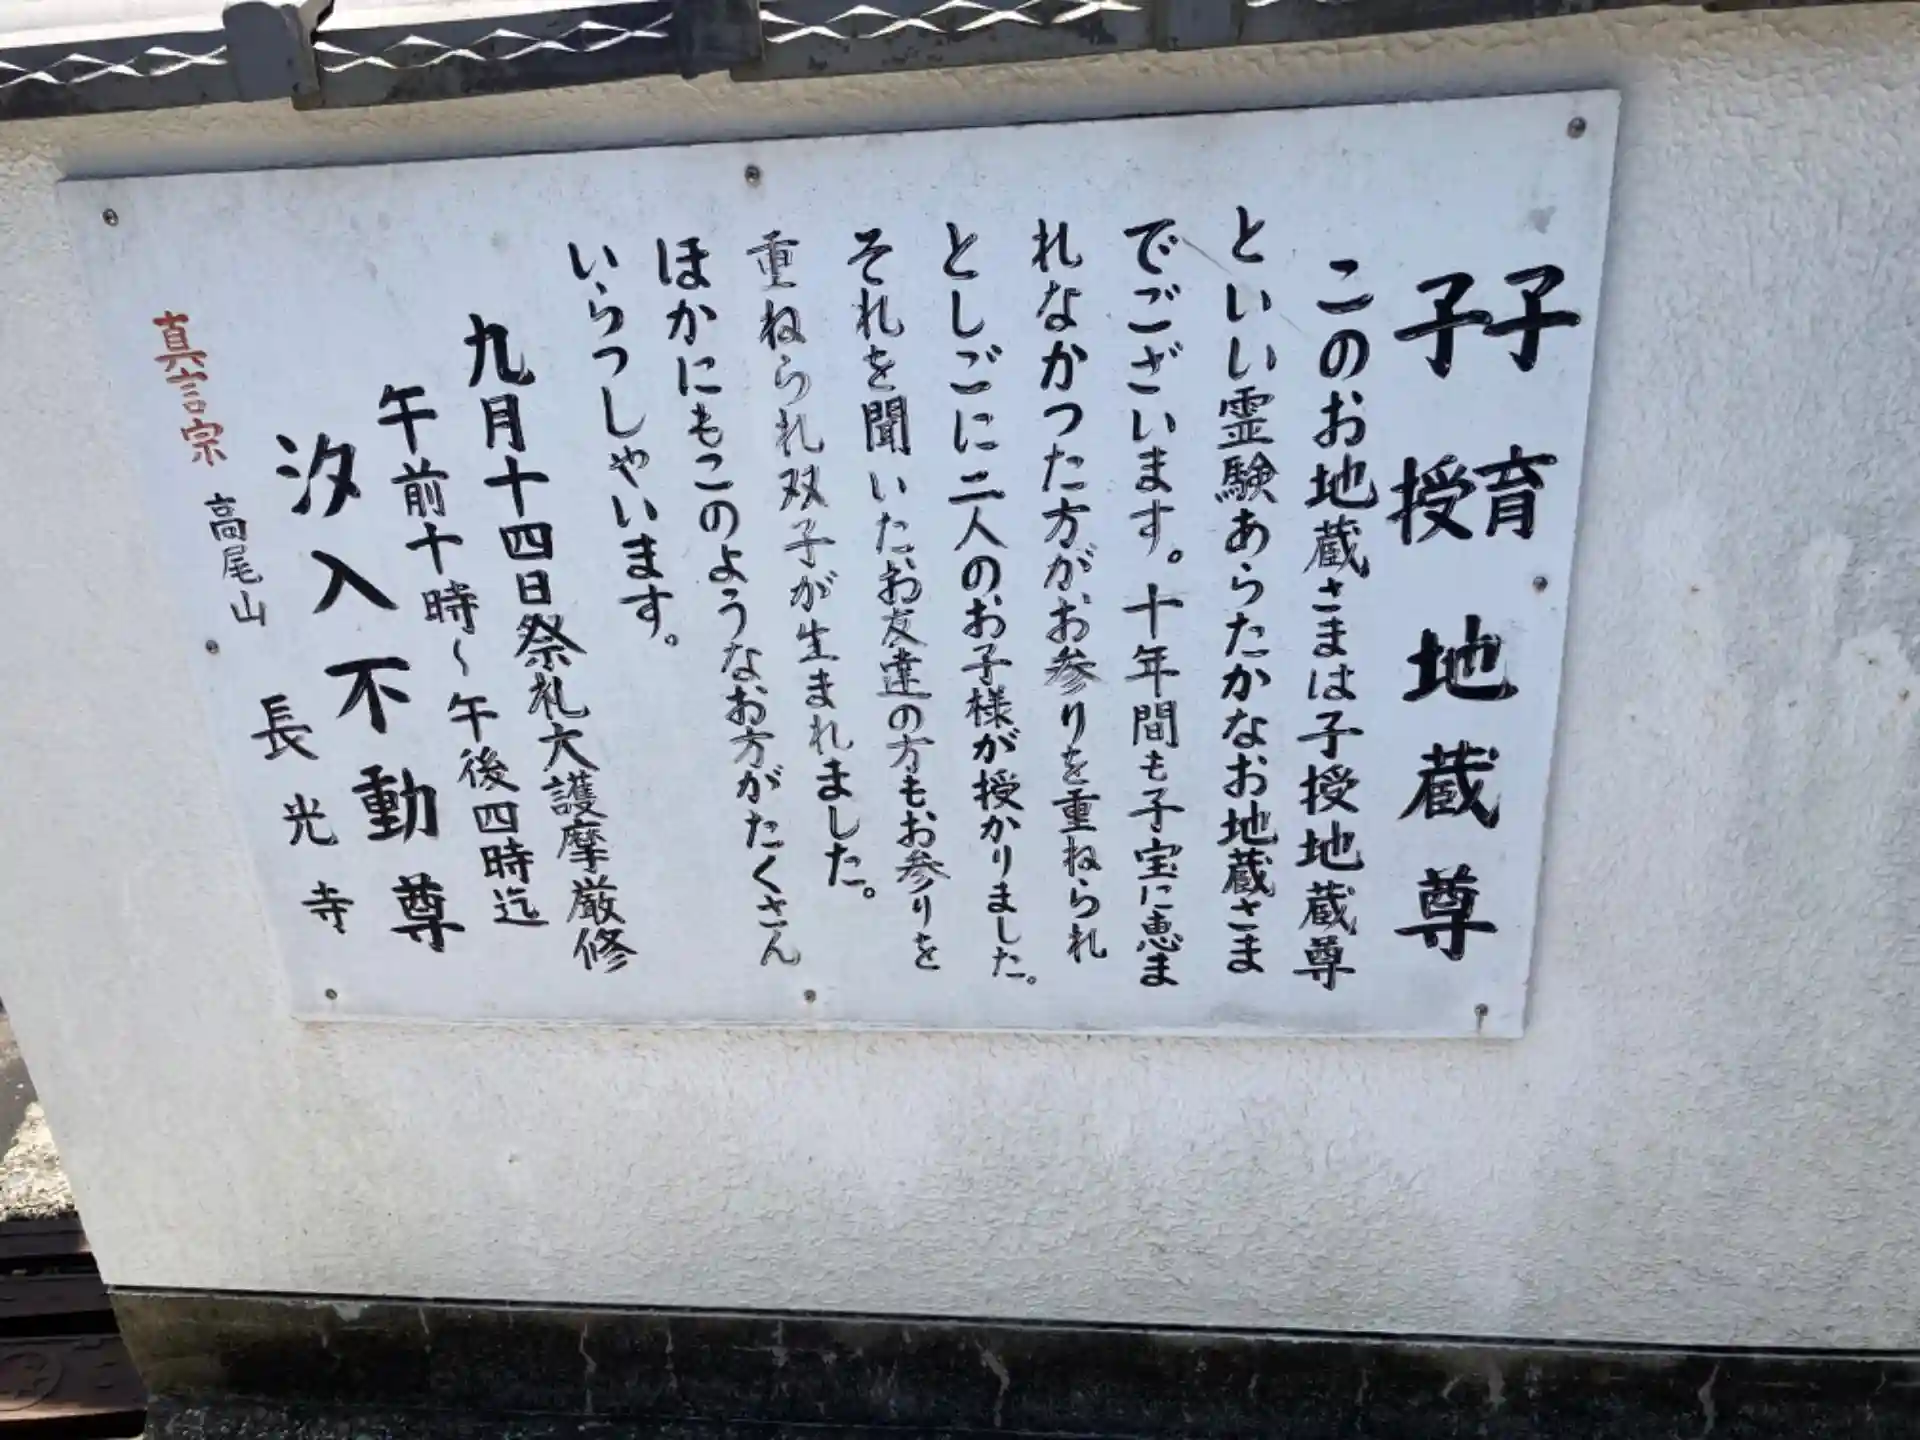 子育
子授 地蔵尊
このお地蔵さまは子授地蔵尊
といい霊験あらたかなお地蔵さま
でございます。十年間も子宝に恵ま
れなかつた方がお参りを重ねられ
としごに二人のお子様が授かりました。
それを聞いたお友達の方もお参りを
重ねられ双子が生まれました。
ほかにもこのようなお方がたくさん
いらつしやいます。
九月十四日祭礼大護摩厳修
午前十時~午後四時迄
汐入不動尊
真言宗 高尾山 長光寺